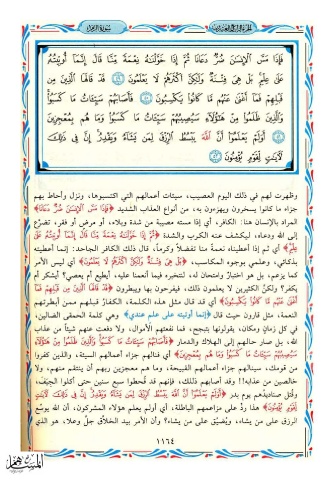 الجزء الرابع والعشرون
سورة الزمر
فَإِذَا مَسَّ الْإِنسَٰنَ ضُرٌّ دَعَانَا ثُمَّ إِذَا خَوَّلْنَٰهُ نِعْمَةً مِّنَّا قَالَ إِنَّمَآ أُوتِيتُهُۥ
عَلَىٰ عِلْمٍ بَلْ هِىَ فِتْنَةٌ وَلَٰكِنَّ أَكْثَرَهُمْ لَا يَعْلَمُونَ ﴿٤٩﴾ قَدْ قَالَهَا الَّذِينَ مِن
قَبْلِهِمْ فَمَآ أَغْنَىٰ عَنْهُم مَّا كَانُوا۟ يَكْسِبُونَ ﴿٥٠﴾ فَأَصَابَهُمْ سَيِّـَٔاتُ مَا كَسَبُوا۟
وَالَّذِينَ ظَلَمُوا۟ مِنْ هَٰٓؤُلَآءِ سَيُصِيبُهُمْ سَيِّـَٔاتُ مَا كَسَبُوا۟ وَمَا هُم بِمُعْجِزِينَ
﴿٥١﴾ أَوَلَمْ يَعْلَمُوٓا۟ أَنَّ اللَّهَ يَبْسُطُ الرِّزْقَ لِمَن يَشَآءُ وَيَقْدِرُ إِنَّ فِى ذَٰلِكَ
لَءَايَٰتٍ لِّقَوْمٍ يُؤْمِنُونَ ﴿٥٢﴾
وظهرت لهم في ذلك اليوم العصيب، سيئات أعمالهم التي اكتسبوها، ونزل وأحاط بهم
جزاء ما كانوا يسخرون ويهزءون به، من أنواع العذاب الشديد ﴿فَإِذَا مَسَّ الْإِنسَٰنَ ضُرٌّ دَعَانَا﴾
المراد بالإنسان هنا: الكافر، أي إذا مسته مصيبة من شدة وبلاء، أو مرض أو فقر، تضرَّع
إلى الله ودعاه، ليكشف عنه الكرب والشدة ﴿ثُمَّ إِذَا خَوَّلْنَٰهُ نِعْمَةً مِّنَّا قَالَ إِنَّمَآ أُوتِيتُهُۥ عَلَىٰ
عِلْمٍ﴾ أي ثم إذا أعطيناه نعمة منا تفضلاً وكرماً، قال ذلك الكافر الجاحد: إنما أعطيته
بذكائي، وعلمي بوجوه المكاسب، ﴿بَلْ هِىَ فِتْنَةٌ وَلَٰكِنَّ أَكْثَرَهُمْ لَا يَعْلَمُونَ﴾ أي ليس الأمر
كما يزعم، بل هو اختبارٌ وامتحان له، لنختبره فيما أنعمنا عليه، أيطيع أم يعصي؟ أيشكر أم
يكفر؟ ولكنَّ الكثيرين لا يعلمون ذلك، فيفرحون بها ويبطرون ﴿قَدْ قَالَهَا الَّذِينَ مِن قَبْلِهِمْ فَمَآ
أَغْنَىٰ عَنْهُم مَّا كَانُوا۟ يَكْسِبُونَ﴾ أي قد قال مثل هذه الكلمة، الكفارُ قبلهم ممن أبطرتهم
النعمة، مثل قارون حيث قال ﴿إنما أوتيته على علم عندي﴾ وهي كلمة الحمقى الضالين،
في كل زمانٍ ومكان، يقولونها بتبجح، فما نفعتهم الأموال، ولا دفعت عنهم شيئاً من عذاب
الله، بل صار حالهم إلى الهلاك والدمار ﴿فَأَصَابَهُمْ سَيِّـَٔاتُ مَا كَسَبُوا۟ وَالَّذِينَ ظَلَمُوا۟ مِنْ هَٰٓؤُلَآءِ
سَيُصِيبُهُمْ سَيِّـَٔاتُ مَا كَسَبُوا۟ وَمَا هُم بِمُعْجِزِينَ﴾ أي فنالهم جزاء أعمالهم السيئة، والذين كفروا
من قومك، سينالهم جزاء أعمالهم القبيحة، وما هم معجزين ربهم أن ينتقم منهم، ولا
خالصين من عذابه!! وقد أصابهم ذلك، فإنهم قد قُحطوا سبع سنين حتى أكلوا الجِيَف،
وقُتل صناديدهم يوم بدر ﴿أَوَلَمْ يَعْلَمُوٓا۟ أَنَّ اللَّهَ يَبْسُطُ الرِّزْقَ لِمَن يَشَآءُ وَيَقْدِرُ إِنَّ فِى ذَٰلِكَ لَءَايَٰتٍ
لِّقَوْمٍ يُؤْمِنُونَ﴾ هذا ردٌّ على مزاعمهم الباطلة، أي أولم يعلم هؤلاء المشركون، أن الله يوسِّع
الرزق على من يشاء، ويُضيِّق على من يشاء؟ وأن الأمر بيد الخلاَّق جلَّ وعلا، هو الذي
١١٦٤